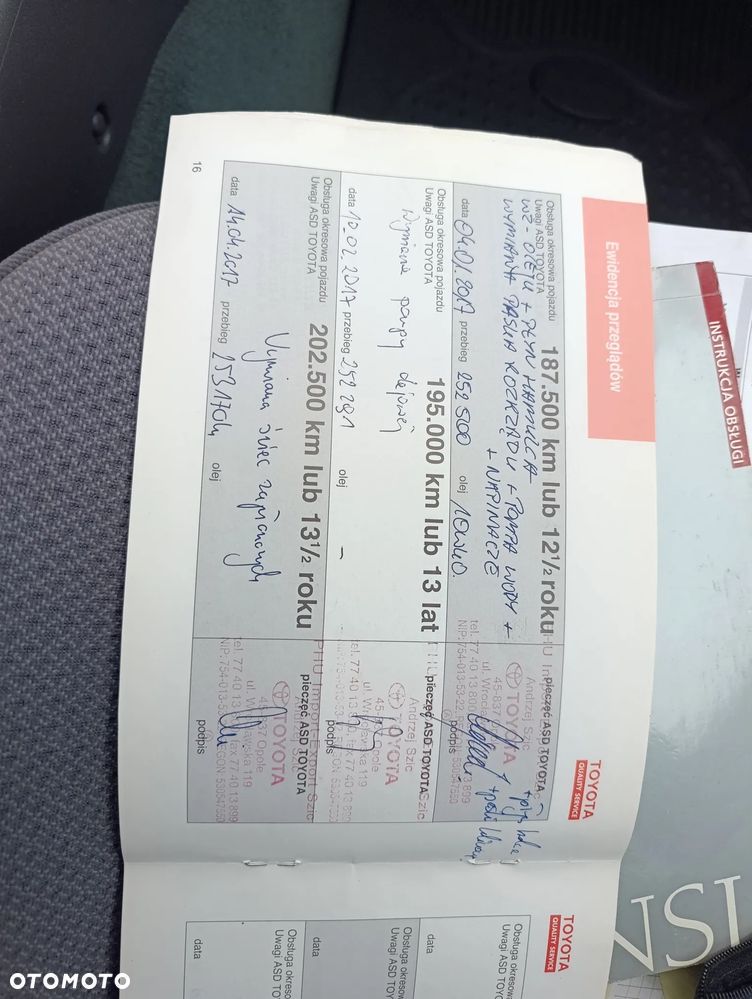 Ewidencja przeglądów
TOYOTA
QUALITY SERVICE
Obsługa okresowa pojazdu
Uwagi ASD TOYOTA
187.500 km lub 12½ roku
pieczęć ASD TOYOTA
WZ - OLEJU + PŁYN HAMULCA
WYMIANA PASKA ROZRZĄDU + POMPA WODY +
+ NAPINACZE
data 04.01.2017 przebieg 252 500 olej 10W40
podpis
Andrzej Szic
TOYOTA
tel. 77 40 13 800
Obsługa okresowa pojazdu
Uwagi ASD TOYOTA
195.000 km lub 13 lat
pieczęć ASD TOYOTA
Wymiana pompy olejowej
data 10.02.2017 przebieg 252 291 olej –
podpis
Andrzej Szic
TOYOTA
Opole
Obsługa okresowa pojazdu
Uwagi ASD TOYOTA
202.500 km lub 13½ roku
pieczęć ASD TOYOTA
Wymiana świec zapłonowych
data 14.04.2017 przebieg 253170 olej
podpis
PHU Import-Export
TOYOTA
Opole
16
TOYOTA
QUALITY SERVICE
Obsługa okresow
Uwagi ASD TOYO
data
Obsługa okresow
Uwagi ASD TOYO
data
Obsługa okresow
Uwagi ASD TO
data
INSTRUKCJA OBSŁUGI
NSI
OTOMOTO